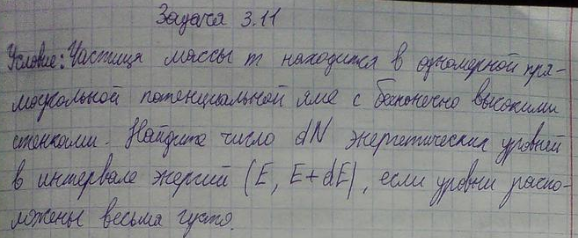 Задача 3.11
Условие: Частица массы m находится в одномерной пря-
моугольной потенциальной яме с бесконечно высокими
стенками. Найдите число dN энергетических уровней
в интервале энергий (E, E+dE), если уровни распо-
ложены весьма густо.